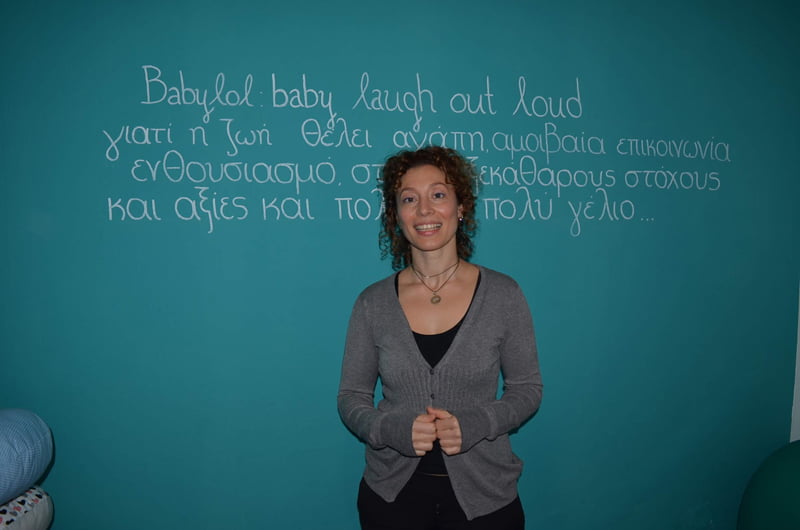 Babylol: baby laugh out loud
γιατί η ζωή θέλει αγάπη, αμοιβαία επικοινωνία
ενθουσιασμό, ξεκάθαρους στόχους
και αξίες και πολύ γέλιο...